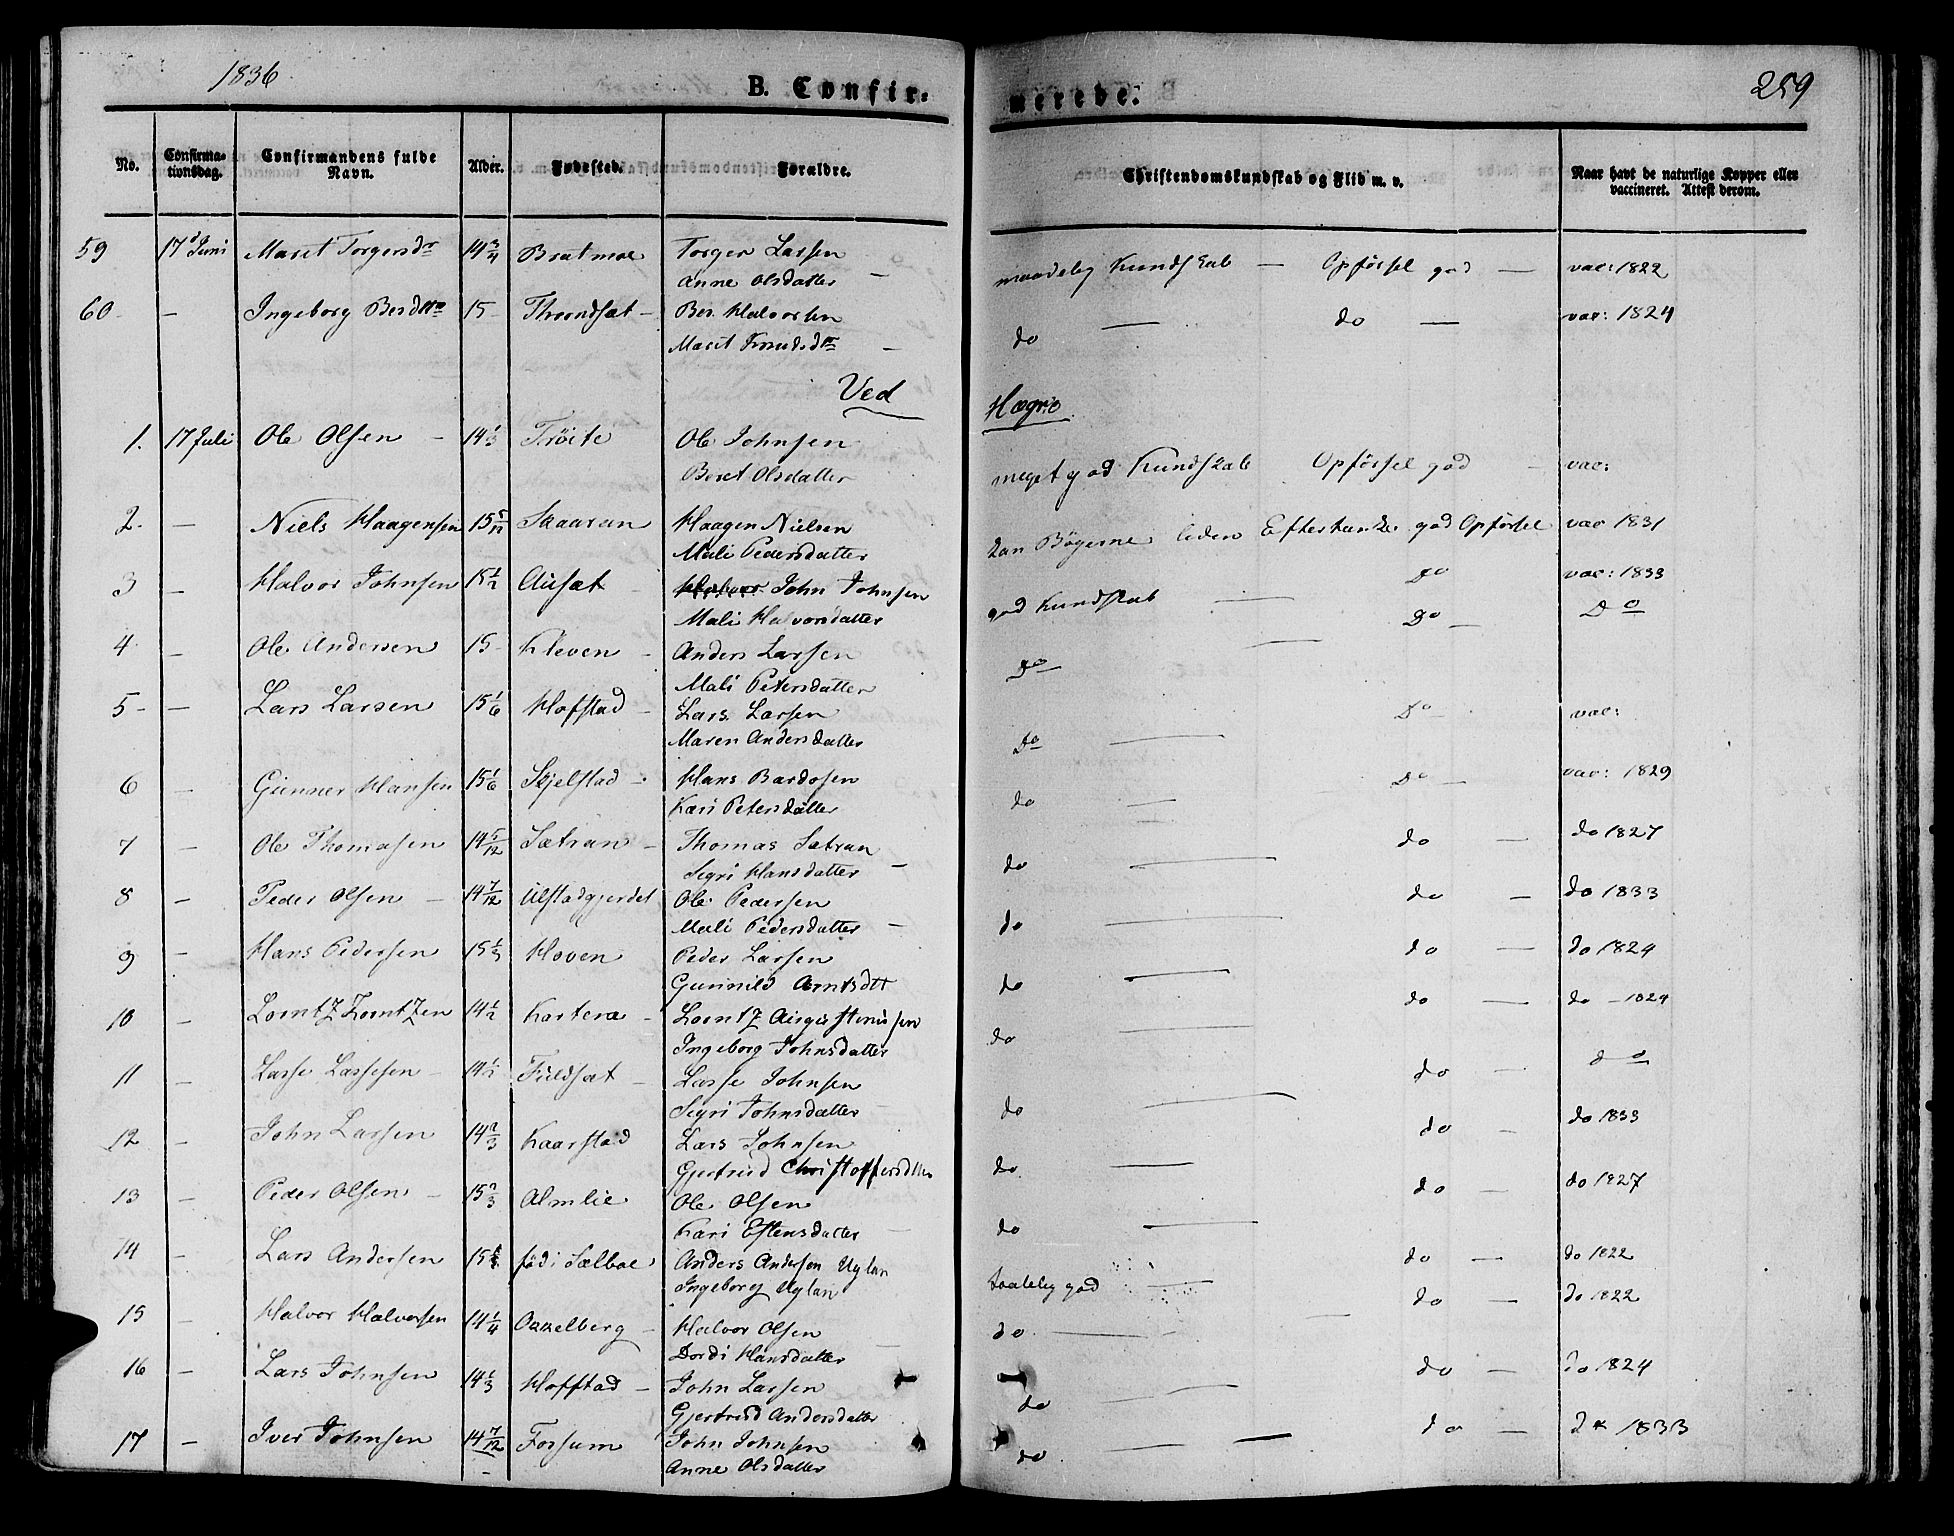 1836
B. Confirmerede.
259
No. Confirmationsdag. Confirmandens fulde Navn. Alder. Fødested. Forældre. Christendomskundskab og Flid m. v. Naar havt de naturlige Kopper eller vaccineret. Attest derom.
59 17d Juni Marit Torgersdr 14 3/4 Bratmoe Torger Larsen maadelig Kundskab — Opførsel god — vac: 1822
Anne Olsdatter —
60 — Ingeborg Bersdttr 15 Throndsæt — Ber Halvorsen do — do — vac: 1824
Marit Knudsdtr —
Ved Hægre
1. 17 Juli Ole Olsen — 14 1/3 Trøite Ole Johnsen meget god Kundskab Opførsel god — vac:
Beret Olsdatter
2. — Niels Haagensen 15 5/12 Skaaran Haagen Nielsen kan Bøgerne, liden Eftertanke god Opførsel vac 1831
Mali Pedersdatter
3 — Halvor Johnsen 15 1/2 Ausæt — Halvor John Johnsen god Kundskab — Do vac: 1833
Mali Halvorsdatter
4 — Ole Andersen 15 Kleven — Anders Larsen Do — Do — Do
Mali Petersdatter
5 — Lars Larsen 15 1/6 Hofstad — Lars Larsen Do — Do — vac:
Maren Andersdatter
6 — Gunner Hansen 15 1/6 Skjelstad — Hans Bardosen do — Do — vac: 1829
Kari Petersdatter
7 — Ole Thomasen 14 5/12 Sætran — Thomas Sætran do — do — do 1827
Sigri Hansdatter —
8 — Peder Olsen — 14 7/12 Ulstadgjerdet Ole Pedersen do — do — do 1833
Mali Pedersdatter —
9 — Hans Pedersen 15 1/3 Hoven Peder Larsen do — do — do 1824
Gunnild Arntsdtt
10 — Lorntz Lorntzen 14 1/2 Lorntz do — do — do — 1824
Ingeborg Johnsdatter
11 — Lasse Lassesen — 14 1/2 Fuldsæt — Lasse Johnsen do — do — do
Sigri Johnsdatter —
12 — John Larsen 14 2/3 Kaarstad Lars Johnsen do — do — do 1833
Gjertrud Christoffersdttr
13 — Peder Olsen — 15 2/3 Almlie Ole Olsen do — do — do 1827
Kari Estensdatter —
14 — Lars Andersen 15 fød i Sælboe Anders Andersen Uglan taalelig god — do — do 1822
Ingeborg Uglan
15 — Halvor Halvorsen 14 1/4 Okkelberg — Halvor Olsen do — do — do 1822
Dordi Hansdatter —
16 — Lars Johnsen 14 1/3 Hoffstad — John Larsen do — do — do 1824
Gjertrud Andersdatter
17 — Iver Johnsen 14 7/12 Forsum John Johnsen do — do — do 1833
Anne Olsdatter